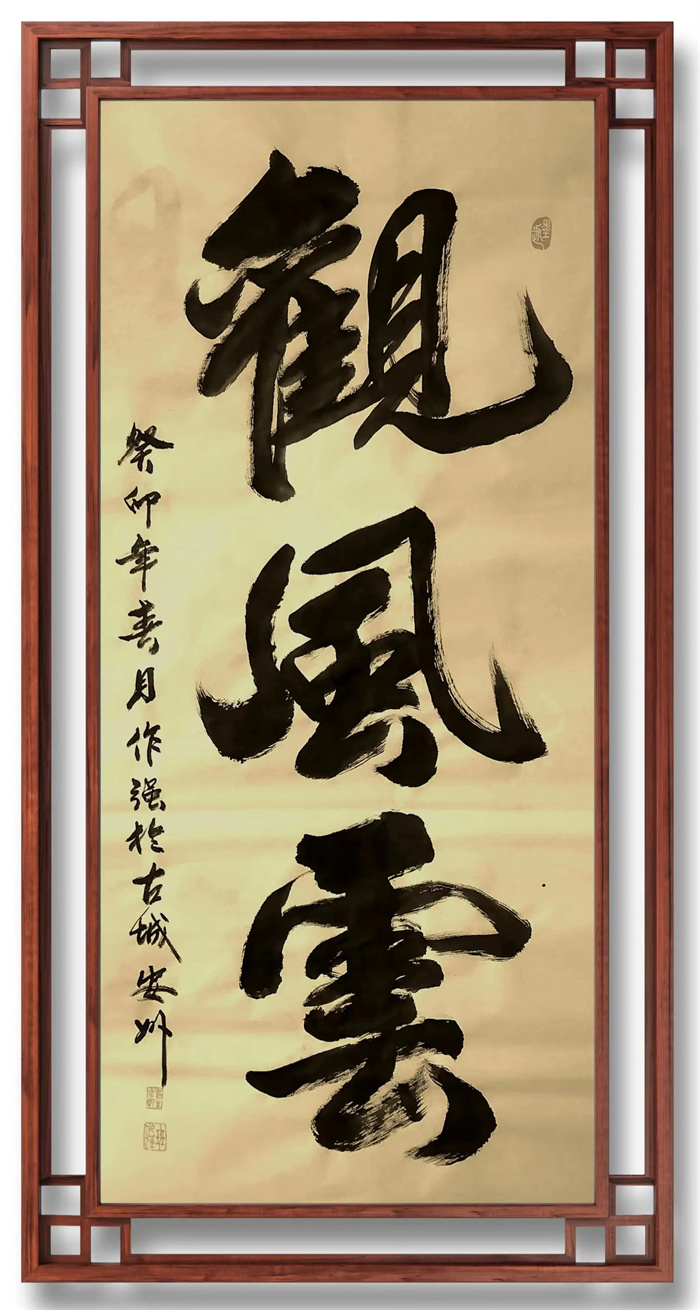 觀風雲
癸卯年春月作强於古城安州